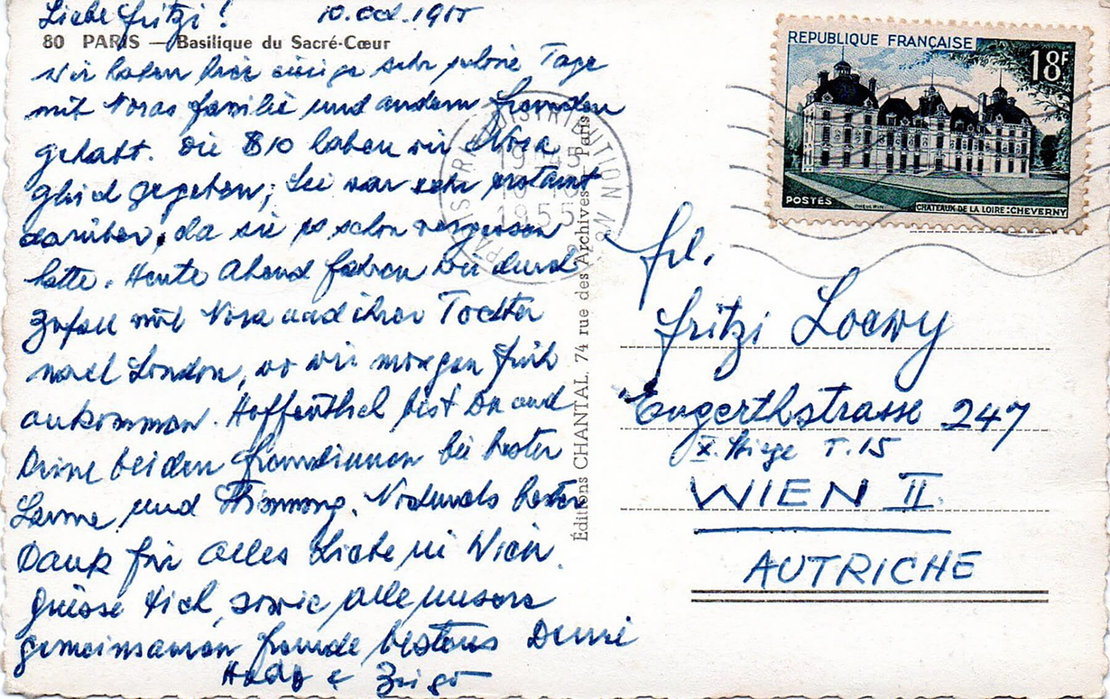 Liebe Fritzi! 10. Oct. 1955
80 PARIS — Basilique du Sacré-Cœur
Wir haben hier einige sehr schöne Tage
mit Noras Familie und andern Freunden
gehabt. Die $10 haben wir Nora
gleich gegeben; Sie war sehr erstaunt
darüber, da sie es schon vergessen
hatte. Heute Abend fahren wir durch
Zufall mit Nora und ihrer Tochter
nach London, wo wir morgen früh
ankommen. Hoffentlich bist Du und
Deine beiden Freundinnen bei bester
Laune und Stimmung. Nochmals besten
Dank für alles Liebe in Wien.
Grüsse Dich, sowie alle unsere
gemeinsamen Freunde bestens Deine
&
Éditions CHANTAL, 74 rue des Archives - Paris
REPUBLIQUE FRANÇAISE
18F
POSTES
CHATEAUX DE LA LOIRE: CHEVERNY
PARIS DISTRIBUTION
19H45
1955
Frl.
Fritzi Loewy
Engerthstrasse 247
X. Stiege T. 15
WIEN II.
AUTRICHE